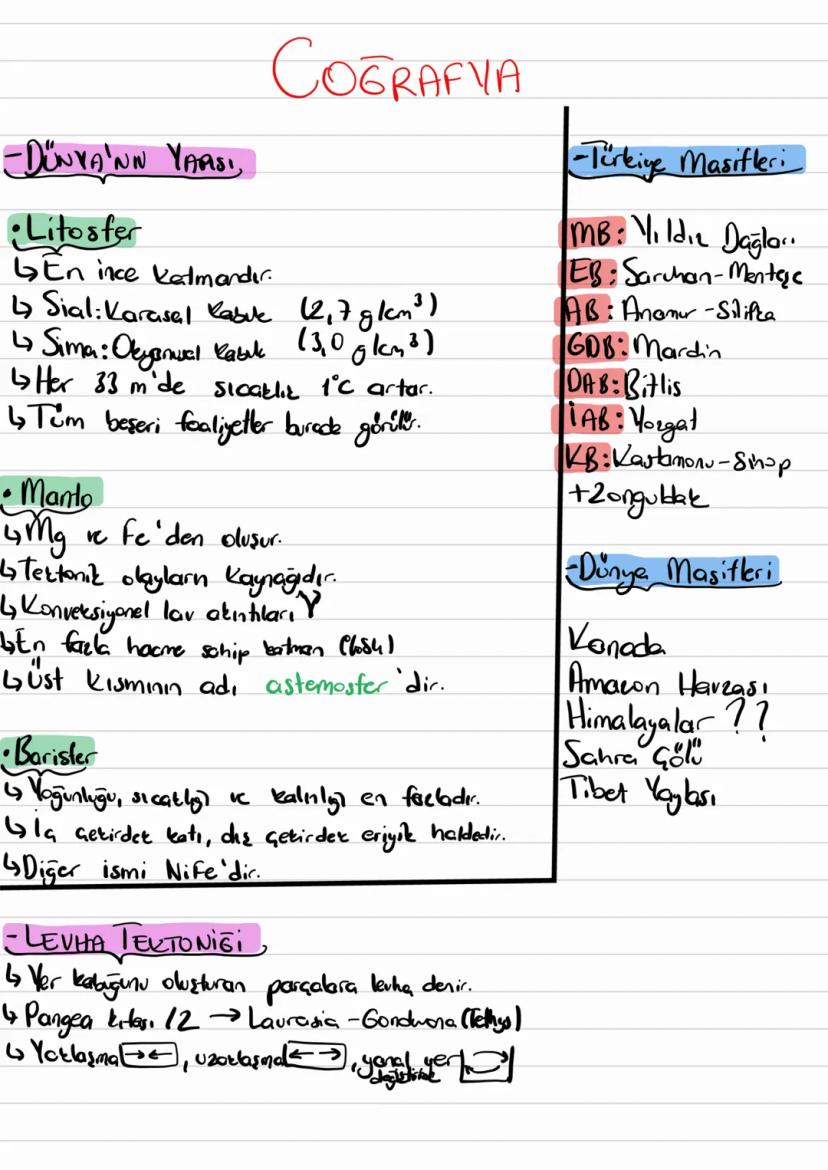 COĞRAFYA
-DÜNYA'NIN YAPISI
• Litosfer
↳ En ince katmandır.
↳ Sial: Karasal kabuk (2,7 g/cm³)
↳ Sima: Okyanusal kabuk (3,0 g/cm³)
↳ Her 33 m'de sıcaklık 1°C artar.
↳ Tüm beşeri faaliyetler burada görülür.
• Manto
↳ Mg ve Fe'den oluşur.
↳ Tektonik olayların kaynağıdır.
↳ Konveksiyonel lav akıntıları
↳ En fazla hacme sahip katman (%84)
↳ Üst kısmının adı astemosfer'dir.
• Barisfer
↳ Yoğunluğu, sıcaklığı ve kalınlığı en fazladır.
↳ İç çekirdek katı, dış çekirdek eriyik haldedir.
↳ Diğer ismi NiFe'dir.
-Türkiye Masifleri
MB: Yıldız Dağları
EB: Saruhan-Menteşe
AB: Anamur-Silifke
GDB: Mardin
DAB: Bitlis
İAB: Yozgat
KB: Kastamonu-Sinop
+Zonguldak
-Dünya Masifleri
Kanada
Amazon Havzası
Himalayalar ??
Sahra Çölü
Tibet Yaylası
-LEVHA TEKTONİĞİ
↳ Yer kabuğunu oluşturan parçalara levha denir.
↳ Pangea kıtası /2 → Laurasia-Gondwana (Tethys)
↳ Yaklaşma →←, uzaklaşma ← →, yanal yer
değiştirme